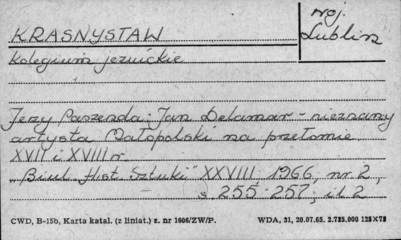 KRASNYSTAW
woj. Lublin
Kolegium jezuickie
Jerzy Paszenda: Jan Delamar - nieznany
artysta Małopolski na przełomie
XVII i XVIII w.
„Biul. Hist. Sztuki" XXVIII 1966, nr 2,
s. 255-257; il 2
CWD, B-15b, Karta katal. (z liniat.) z. nr 1606/ZW/P. WDA, 31, 20.07.65. 2.725.000 125×75